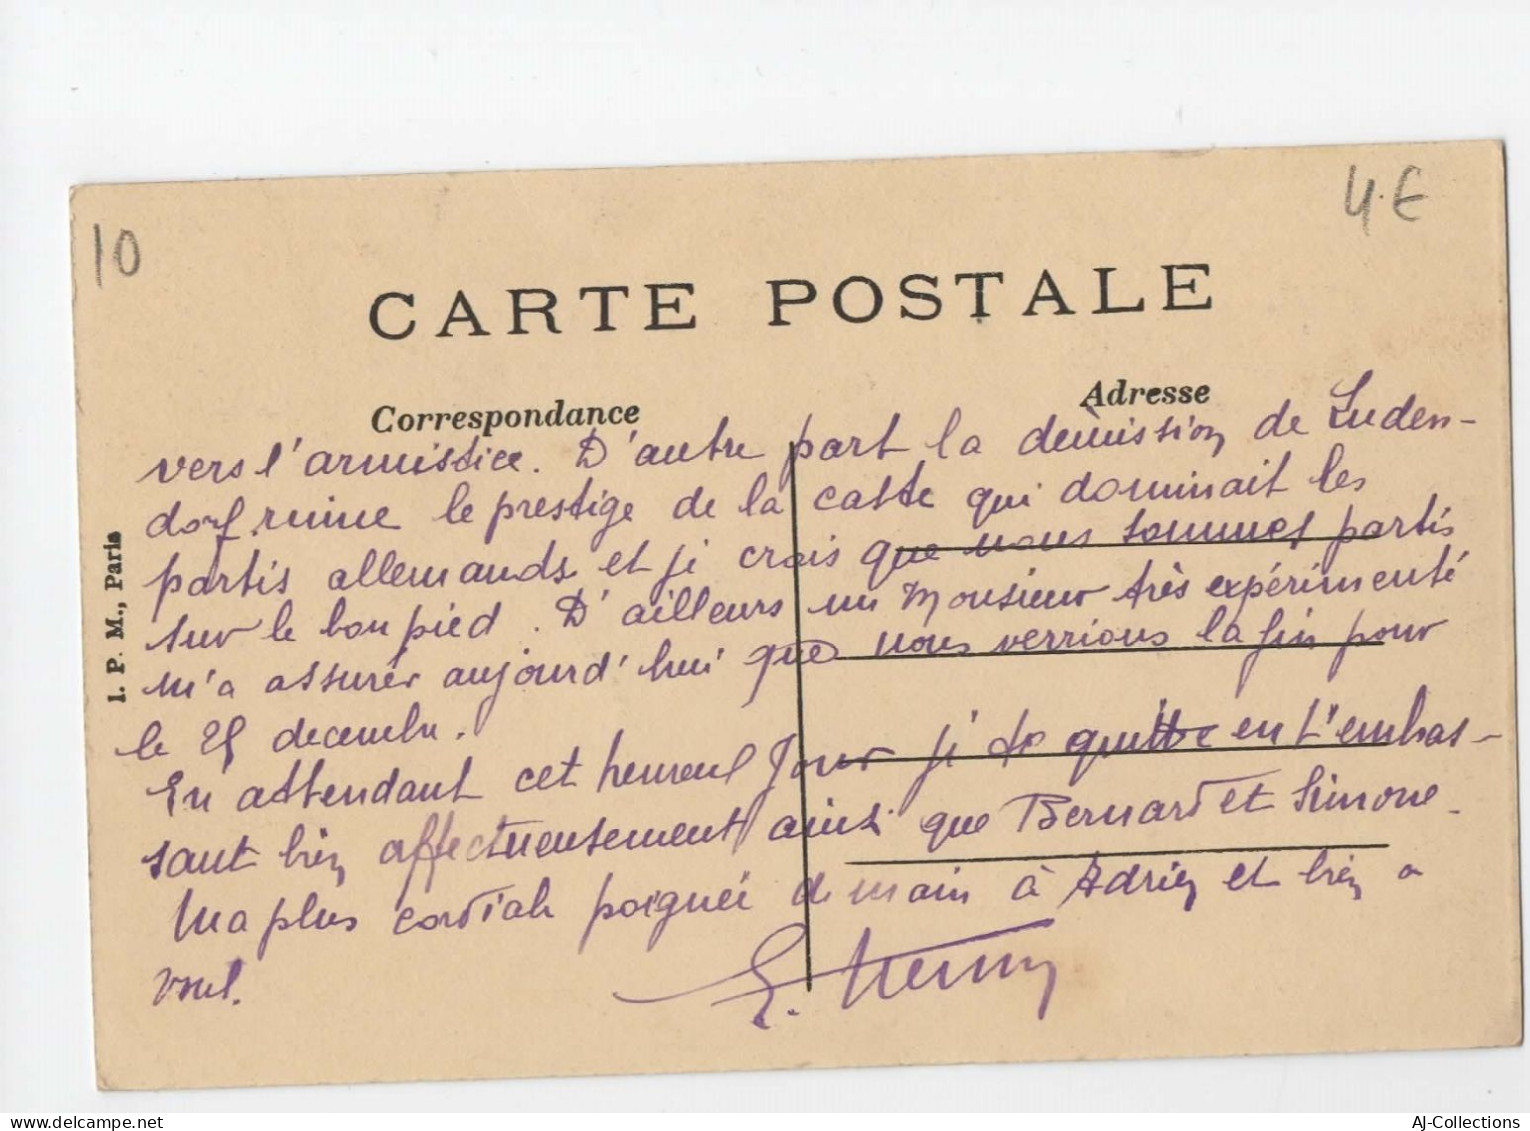 10
4.€
CARTE POSTALE
Correspondance
Adresse
I. P. M., Paris
vers l'armistice. D'autre part la démission de Luden-
dorf ruine le prestige de la caste qui dominait les
partis allemands et je crois que nous sommes partis
sur le bon pied. D'ailleurs un Monsieur très expérimenté
m'a assurér aujourd'hui que nous verrions la fin pour
le 25 decembre.
En attendant cet heureux jour je te quitte en t'embras-
sant bien affectueusement ainsi que Bernard et Simone.
Ma plus cordiale poignée de main à Adrien et bien a
vous.
AJ-Collections
delcampe.net